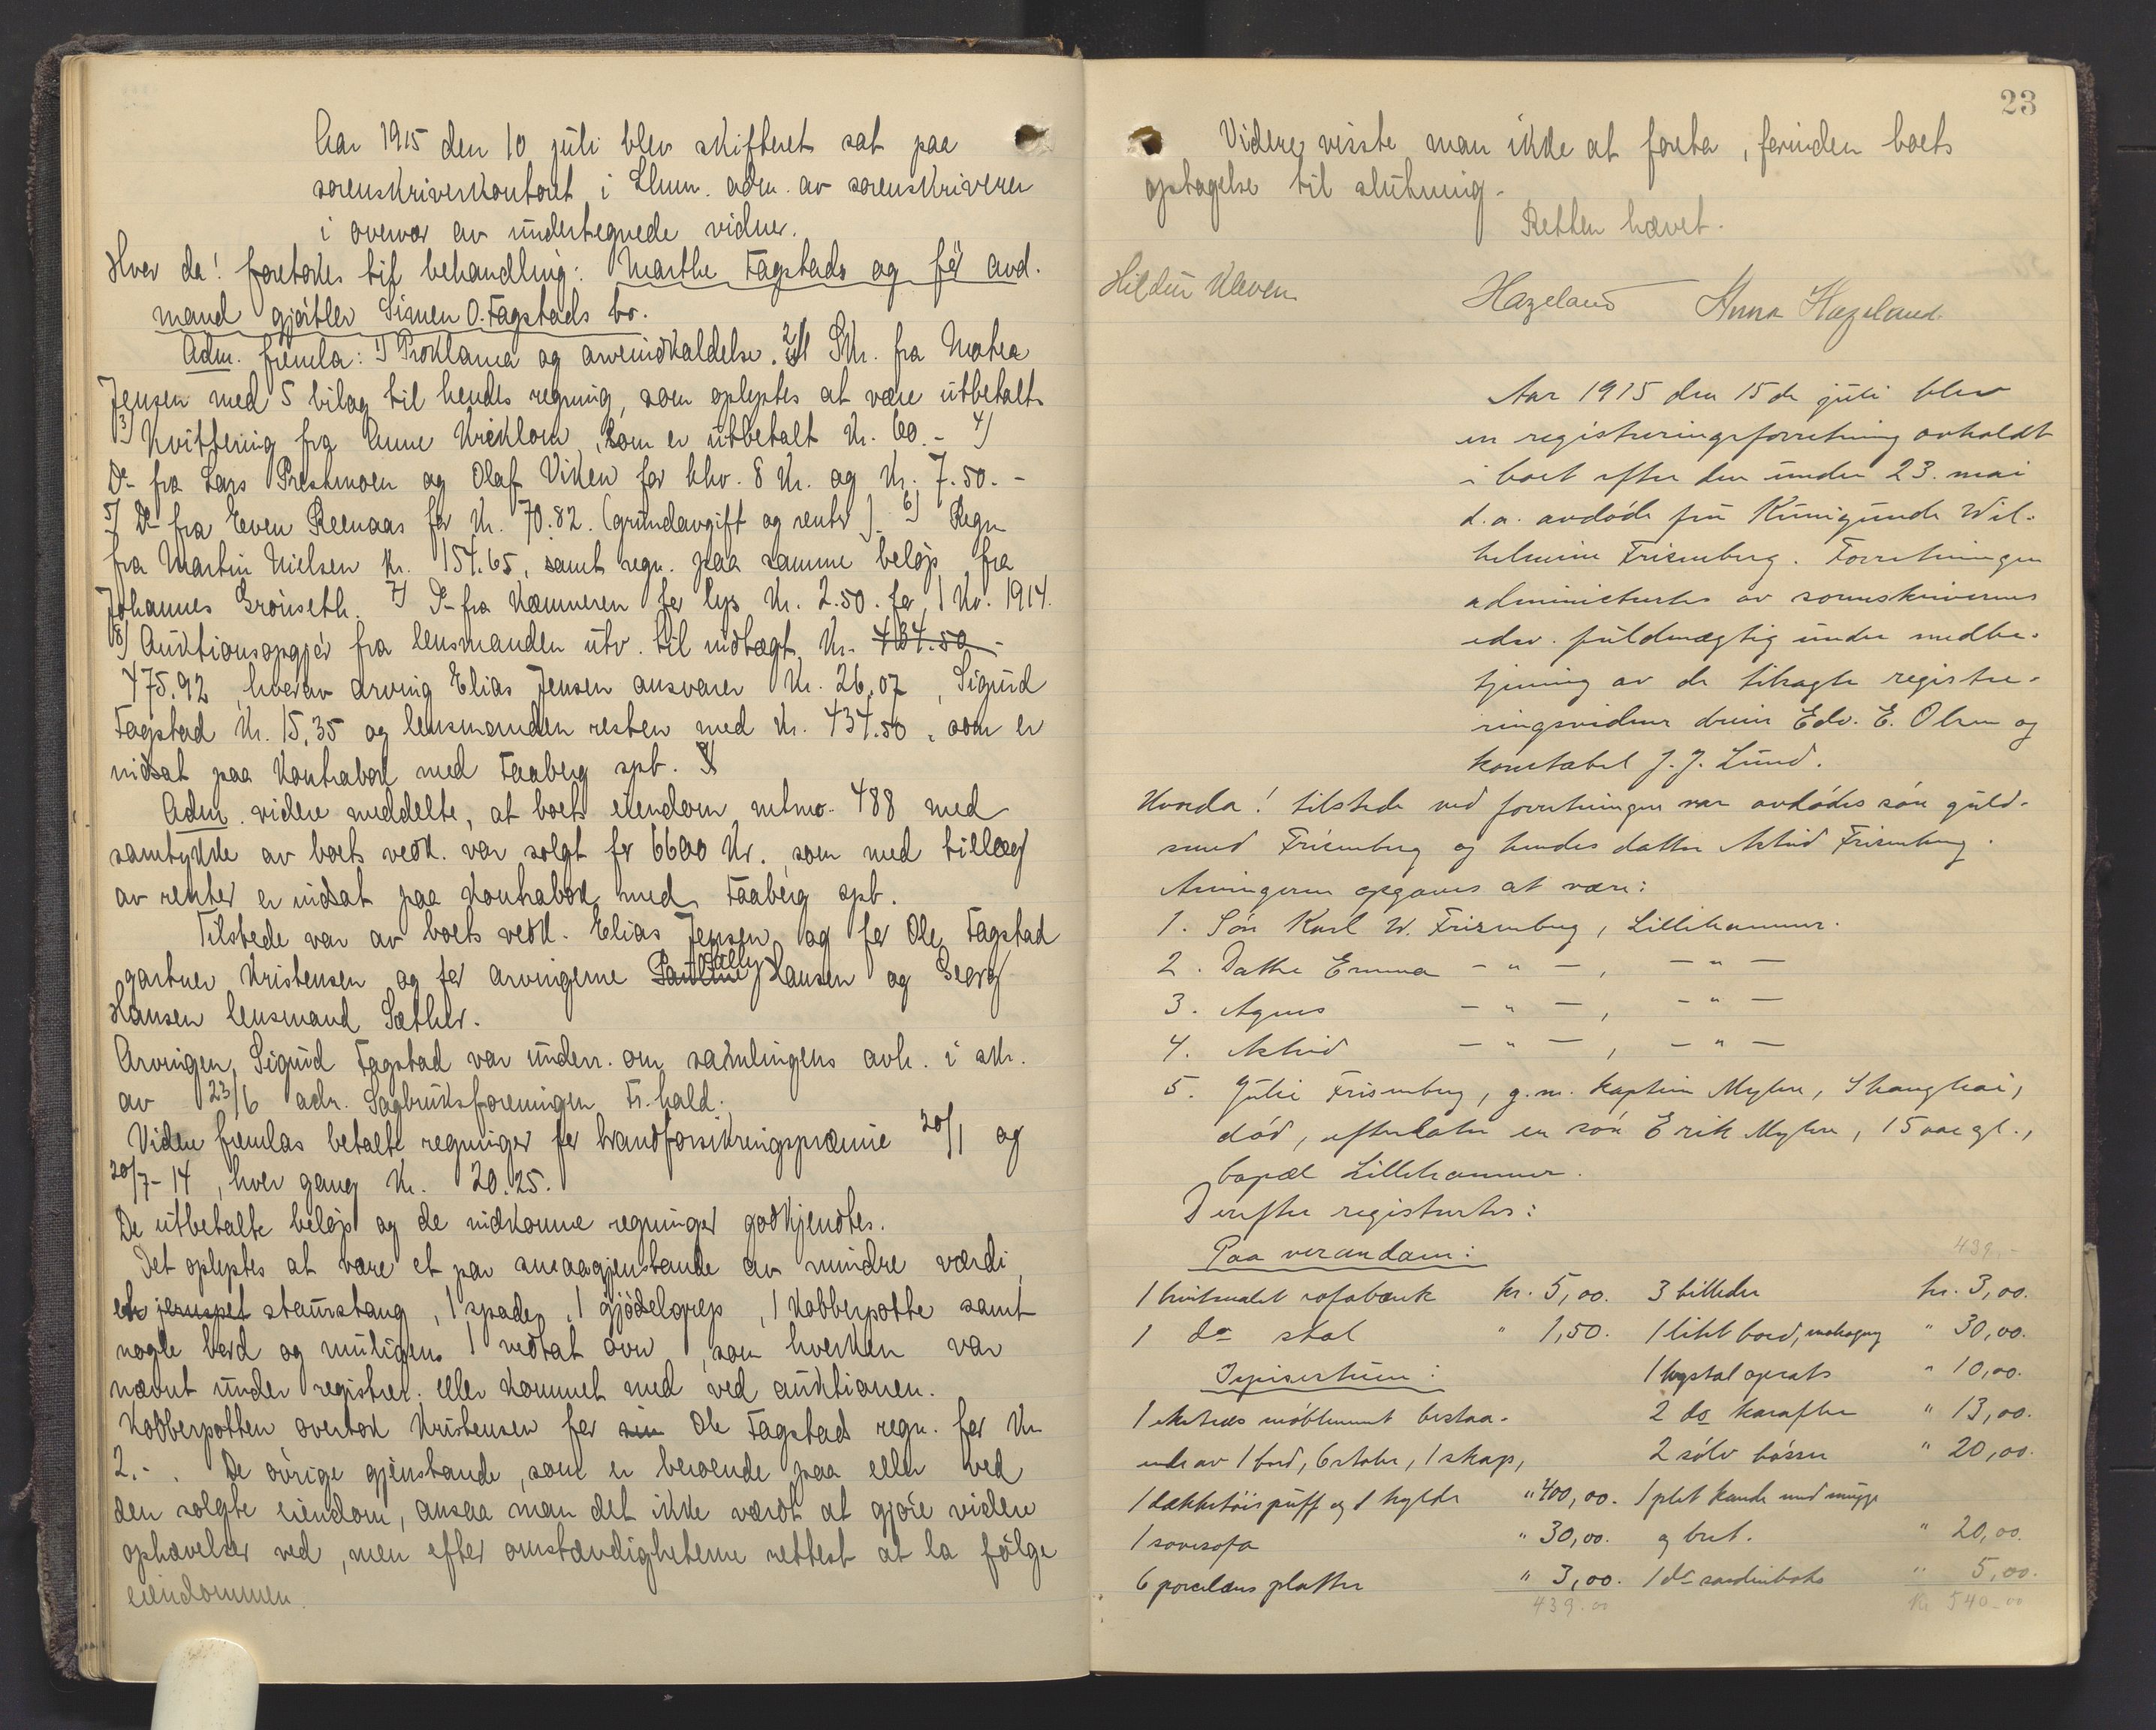 Aar 1915 den 10 juli blev skifteret sat paa
sorenskriverkontoret i Lhmr. adm. av sorenskriveren
i overvær av undertegnede vidner.
Hvor da! foretokes til behandling: Marthe Fagstads og før avd.
mand gjørtler Simen O. Fagstads bo.
Adm. fremla: 1) Proklama og arveindkaldelse. 2) Skr. fra Mathea
Jensen med 5 bilag til hendes regning, som oplystes at være utbetalt.
3) Kvittering fra Anne , som er utbetalt Kr. 60.- 4)
Do fra Lars Prestmoen og Olaf Viken for hhv. 8 Kr. og Kr. 7.50.-
5) Do fra Even Reenaas for Kr. 70.82. (grundavgift og renter). 6) Regn
fra Martin Nielsen Kr. 154.65, samt regn. paa samme beløp fra
Johannes Grønseth. 7) Do fra Kæmneren for lys Kr. 2.50. for 1 Kv. 1914.
8) Auktionsopgjør fra lensmanden utv. til indtægt Kr. 434.50 -
475.92, hvorav arving Elias Jensen ansvarer Kr. 26.07, Sigurd
Fagstad Kr. 15.35 og lensmanden resten med Kr. 434.50, som er
indsat paa Kontrabok med Faaberg spb.
Adm. videre meddelte, at boets eiendom mtrno. 488 med
samtykke av boets vedk. var solgt for 6600 Kr., som med tillæg
av renter er indsat paa Kontrabok med Faaberg spb.
Tilstede var av boets vedk. Elias Jensen og for Ole Fagstad
gartner Kristensen og for arvingerne Pauline Hansen og Georg
Hansen lensmand Sæther.
Arvingen Sigurd Fagstad var underr. om samlingens avh. i skr.
av 23/6 adr. Sagbruksforeningen Fr.hald.
Videre fremlas betalte regninger for brandforsikringspræmie 20/1 og
20/7-14, hver gang Kr. 20.25.
De utbetalte beløp og de indkomne regninger godkjendtes.
Det oplystes at være et par smaagjenstande av mindre værdi,
et jernspet staurstang, 1 spade, 1 gjødselgrep, 1 Kobberpotte samt
nogle bord og muligens 1 vedtat ovn, som hverken var
nævnt under registrer. eller kommet med ved auktionen.
Kobberpotten overtok Kristensen for sin Ole Fagstads regn. for Kr.
2.-. De øvrige gjenstande, som er beroende paa eller ved
den solgte eiendom, ansaa man det ikke værdt at gjøre videre
ophævelser ved, men efter omstændigheterne rettest at la følge
eiendommen.
23
Videre visste man ikke at foreta, forinden boets
optagelse til slutning.
Retten hævet.
Hildur Kleven Hazeland Anna Hazeland.
Aar 1915 den 15de juli blev
en registreringsforretning avholdt
i boet efter den under 23. mai
d.a. avdøde fru Kunigunde Wil-
helmine Frisenberg. Forretningen
administrertes av sorenskriverens
edsv. fuldmægtig under medbe-
tjening av de tilkaldte registre-
ringsvidner Edv. E. Olsen og
konstabel J. J. Lund.
Hvorda! tilstede ved forretningen var avdødes søn guld-
smed Frisenberg og hendes datter Astrid Frisenberg.
Arvingerne opgaves at være:
1. Søn Karl W. Frisenberg, Lillehammer.
2. Datter Emma - " -, - " -
3. Agnes - " -, - " -
4. Astrid - " -, - " -
5. Julie Frisenberg, g.m. kaptein Myhre, Shanghai,
død, efterlater en søn Erik Myhre, 15 aar gl.,
bopæl Lillehammer.
Derefter registrertes:
Paa verandaen: 439.-
1 hvitmalet sofabænk kr. 5,00. 3 billeder kr. 3,00.
1 do stol " 1,50. 1 litet bord, mahogny " 30,00.
I spisestuen: 1 krystal opsats " 10,00.
1 ekstræs møblement bestaa- 2 do karafler " 13,00.
ende av 1 bord, 6 stoler, 1 skap, 2 sølv bøsser " 20,00.
1 dækketøispuff og 1 hylde " 400,00. 1 plet kande med mugge
1 sovesofa " 30,00. og bret. " 20,00.
6 porcelæns platter " 3,00. 1 do sardinboks " 5,00.
439.00 Kr 540-00